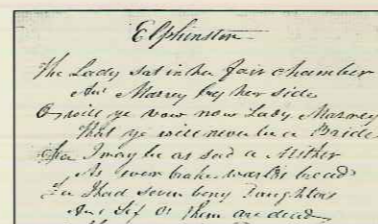 Elphinston
The Lady sat in her fair chamber
An' Marrey by her side
O will ye vow now Lady Marrey
That ye will never be a Bride
For I may be as sad a Mither
As ever brake warld's bread
For I had seven bony Daughters
An' Sif o' them are dead